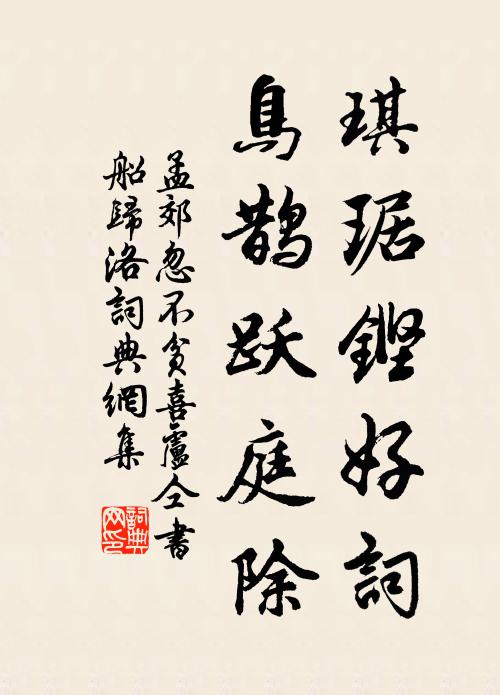 琪琚鏗好詞
鳥鵲跃庭除
孟郊忽不貧喜盧仝書
船歸洛詞典網集
詞典
网印